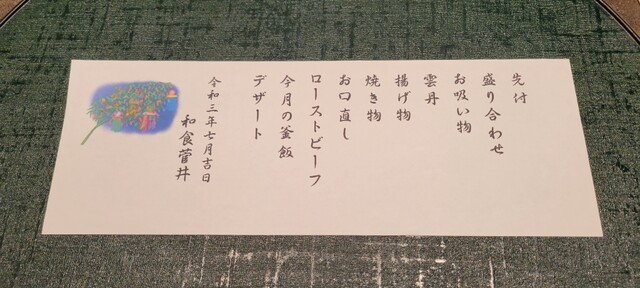 先付
盛り合わせ
お吸い物
雲丹
揚げ物
焼き物
お口直し
ローストビーフ
今月の釜飯
デザート
令和三年七月吉日
和食菅井